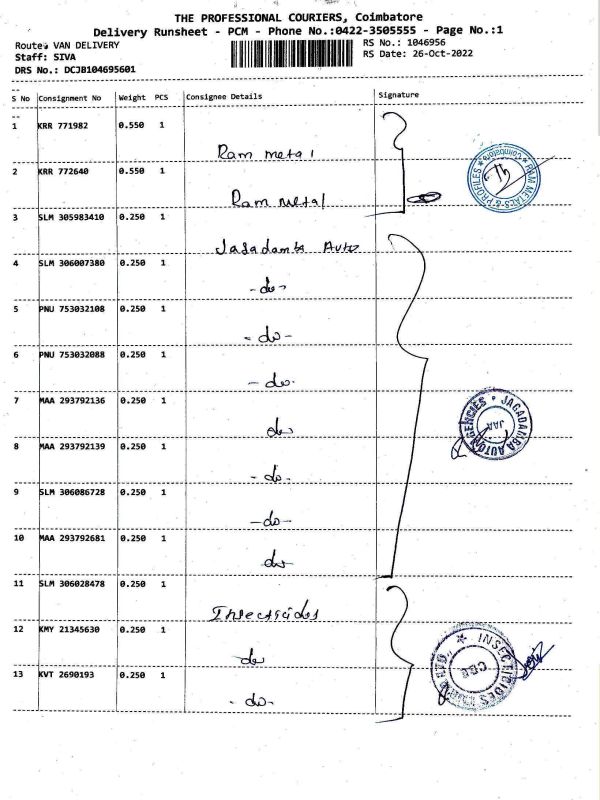 THE PROFESSIONAL COURIERS, Coimbatore
Delivery Runsheet - PCM - Phone No.:0422-3505555 - Page No.:1
Route: VAN DELIVERY
RS No.: 1046956
Staff: SIVA
RS Date: 26-Oct-2022
DRS No.: DCJB104695601
S No Consignment No Weight PCS Consignee Details Signature
1 KRR 771982 0.550 1
Ram metal
2 KRR 772640 0.550 1
Ram metal
RAM METALS & PROFILES * Coimbatore *
3 SLM 305983410 0.250 1
Jagadamba Auto
4 SLM 306007380 0.250 1
-do-
5 PNU 753032108 0.250 1
-do-
6 PNU 753032088 0.250 1
-do-
7 MAA 293792136 0.250 1
do
JAGADAMBA AUTO AGENCIES
8 MAA 293792139 0.250 1
-do-
9 SLM 306086728 0.250 1
-do-
10 MAA 293792681 0.250 1
do
11 SLM 306028478 0.250 1
Insecticides
12 KMY 21345630 0.250 1
do
INSECTICIDES
CBB
13 KVT 2690193 0.250 1
-do-